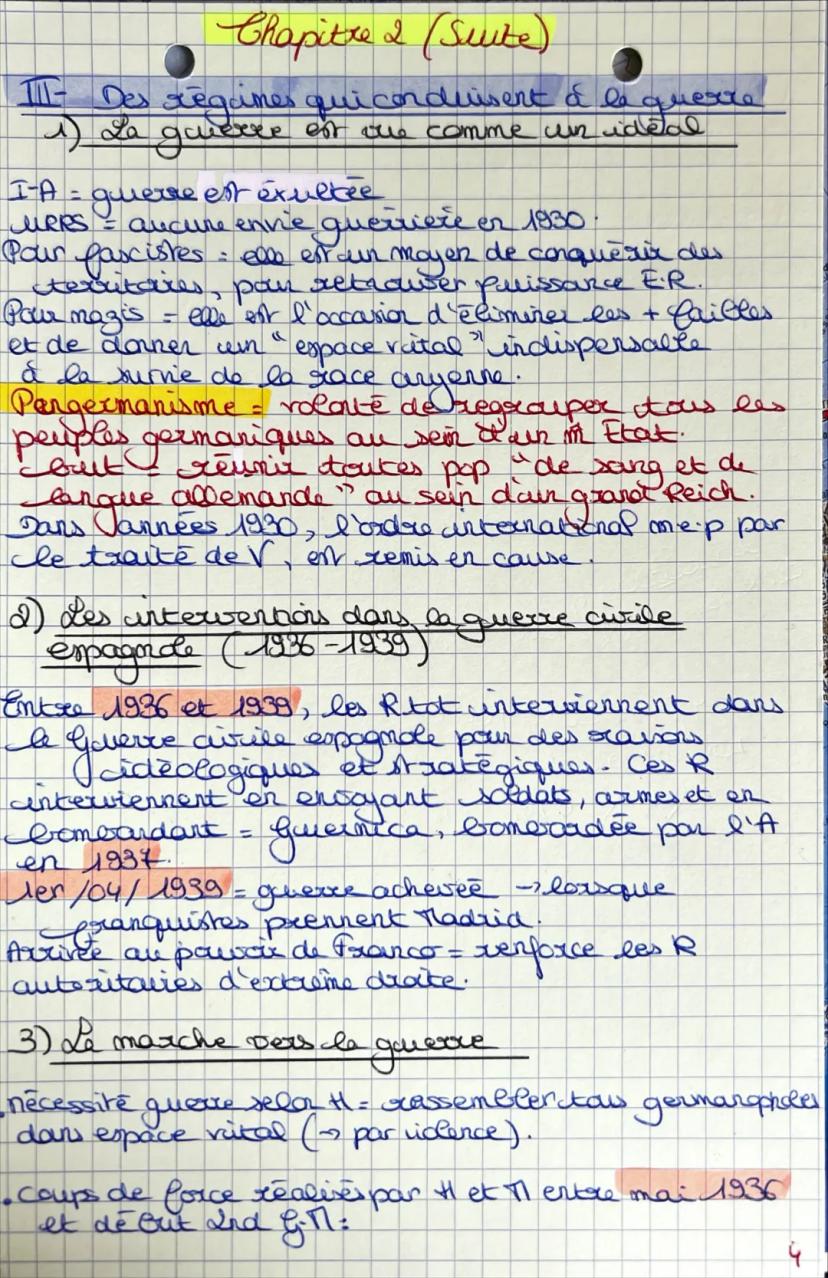 Chapitre 2 (Suite)
III- Des régimes qui conduisent à la guerre
1) La guerre est vue comme un idéal
I-A = guerre est éxultée
URRS = aucune envie guérrière en 1930.
Pour fascistes = elle est un moyen de conquérir des
territoires, pour retrouver puissance E.R.
Pour nazis = elle est l'occasion d'éliminer les + faibles
et de donner un "espace vital" indispensable
à la survie de la race aryenne.
Pangermanisme = volonté de regrouper tous les
peuples germaniques au sein d'un m̂ Etat.
but = réunir toutes pop "de sang et de
langue allemande" au sein d'un grand Reich.
Dans années 1930, l'ordre international m.e.p par
le traité de V, est remis en cause.
2) Les interventions dans la guerre civile
espagnole (1936-1939)
Entre 1936 et 1939, les R tot interviennent dans
la Guerre civile espagnole pour des raisons
idéologiques et stratégiques. Ces R
interviennent en envoyant soldats, armes et en
bombardant = Guernica, bombardée par l'A
en 1937.
1er/04/1939 = guerre achevée → lorsque
franquistes prennent Madrid.
Arrivée au pouvoir de Franco = renforce les R
autoritaires d'extrême droite.
3) La marche vers la guerre
. nécessité guerre selon H = rassembler tous germanopholes
dans espace vital (→ par violence).
. coups de force réalisés par H et M entre mai 1936
et début 2nd G.M :
4